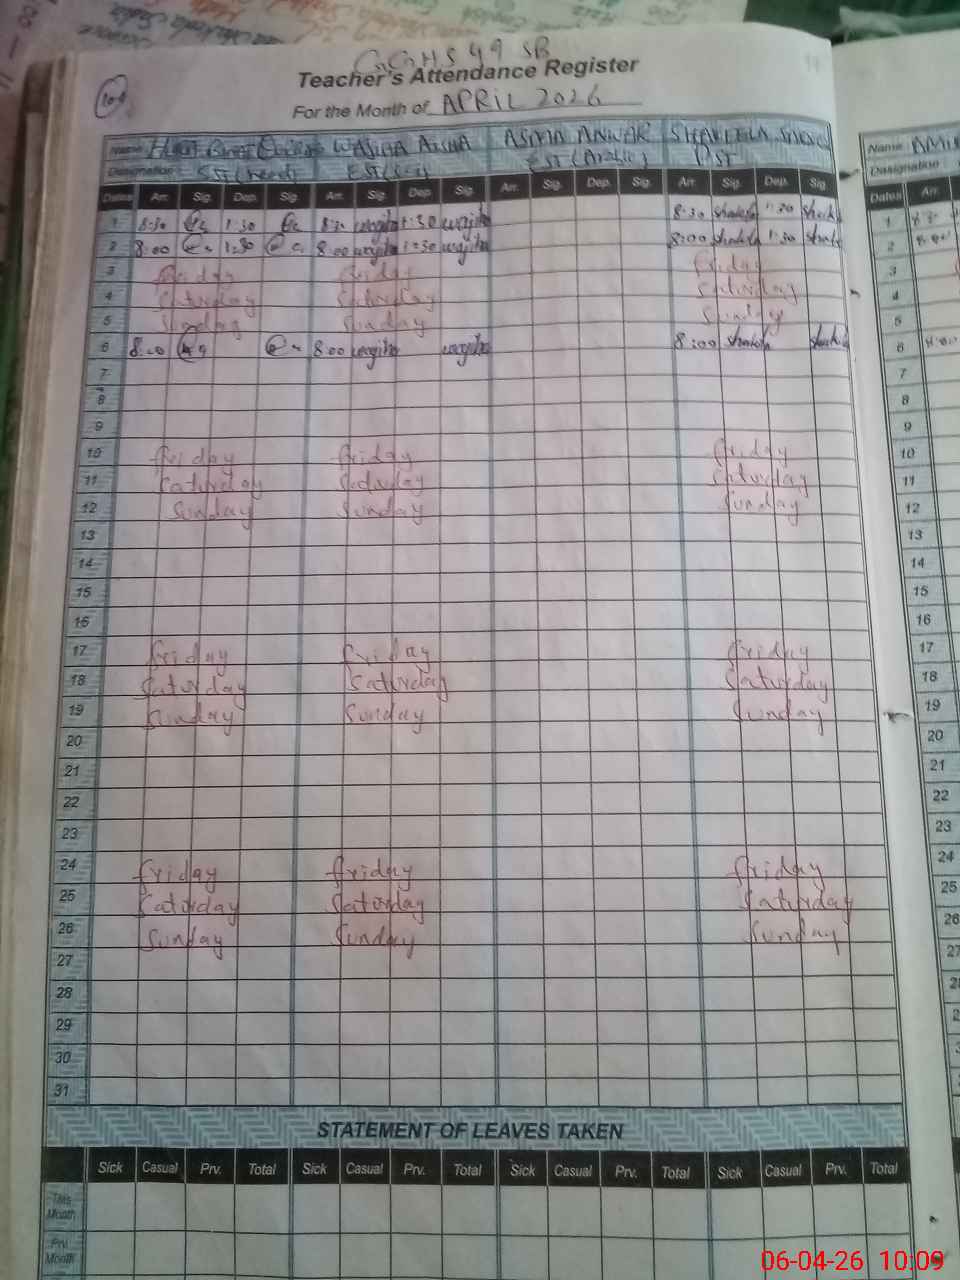 GGHS 49 SB
Teacher's Attendance Register
104
For the Month of APRIL 2026
Name WAJIHA AISHA ASMA ANWAR SHAKEELA Name
Designation SST (head) EST EST (Arabic) PST Designation
Dates Arr. Sig. Dep. Sig. Arr. Sig. Dep. Sig. Arr. Sig. Dep. Sig. Arr. Sig. Dep. Sig. Dates Arr
1 8:30 1:30 8:30 wajiha 1:30 wajiha 8:30 shakela 1:30 1
2 8:00 1:30 8:00 wajiha 1:30 wajiha 8:00 shakela 1:30 2
3 friday friday friday 3
4 saturday saturday saturday 4
5 sunday sunday sunday 5
6 8:00 8:00 wajiha wajiha 8:00 shakela 6
7 7
8 8
9 9
10 friday friday friday 10
11 saturday saturday saturday 11
12 sunday sunday sunday 12
13 13
14 14
15 15
16 16
17 friday friday friday 17
18 saturday saturday saturday 18
19 sunday sunday sunday 19
20 20
21 21
22 22
23 23
24 friday friday friday 24
25 saturday saturday saturday 25
26 sunday sunday sunday 26
27 27
28
29
30
31
STATEMENT OF LEAVES TAKEN
Sick Casual Prv. Total Sick Casual Prv. Total Sick Casual Prv. Total Sick Casual Prv. Total
This Month
Prv. Month
06-04-26 10:09